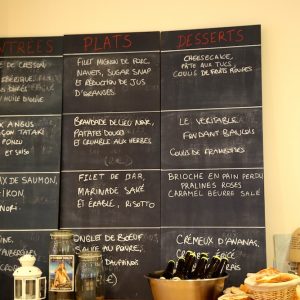 ENTRÉES
DE CRESSON
IBÉRIQUE
HUILE D'OLIVE
ANGUS
TATAKI
POIVRE
et soja
DE SAUMON,
PLATS
FILET MIGNON DE PORC,
NAVETS, SUGAR SNAP
ET RÉDUCTION DE JUS
D'ORANGES
BRANDADE DE LIEU NOIR,
PATATES DOUCES
ET CRUMBLE AUX HERBES
FILET DE BAR,
MARINADE SAKÉ
ET ÉRABLE, RISOTTO
ONGLET DE BOEUF
SAUCE AU POIVRE,
DAUPHINOIS
DESSERTS
CHEESECAKE,
PÂTE AUX TUCS,
COULIS DE FRUITS ROUGES
LE VÉRITABLE
FONDANT BAULOIS
COULIS DE FRAMBOISES
BRIOCHE EN PAIN PERDU
PRALINES ROSES
CARAMEL BEURRE SALÉ
CRÉMEUX D'ANANAS,